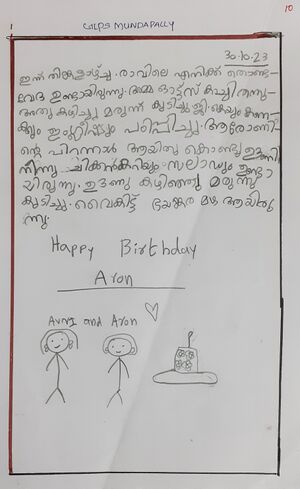 10
GLPS MUNDAPALLY
30.10.23
ഇന്ന് തിങ്കളാഴ്ച. രാവിലെ എനിക്ക് തൊണ്ട-
വേദന ഉണ്ടായിരുന്നു. അമ്മ ഓട്ട്സ് കാച്ചി തന്നു-
അതു കുടിച്ചു മരുന്ന് കുടിച്ചു
ഇംഗ്ലീഷും പഠിപ്പിച്ചു. ആരോണി-
ന്റെ പിറന്നാൾ ആയതു കൊണ്ടു
ചിക്കൻകറിയും സലാഡും ഉണ്ടാ
യിരുന്നു. ഉണു കഴിഞ്ഞു മരുന്നു
കുടിച്ചു. വൈകിട്ട് ഭയങ്കര മഴ ആയിരു
ന്നു.
Happy Birthday
Aron
Avni and Aron